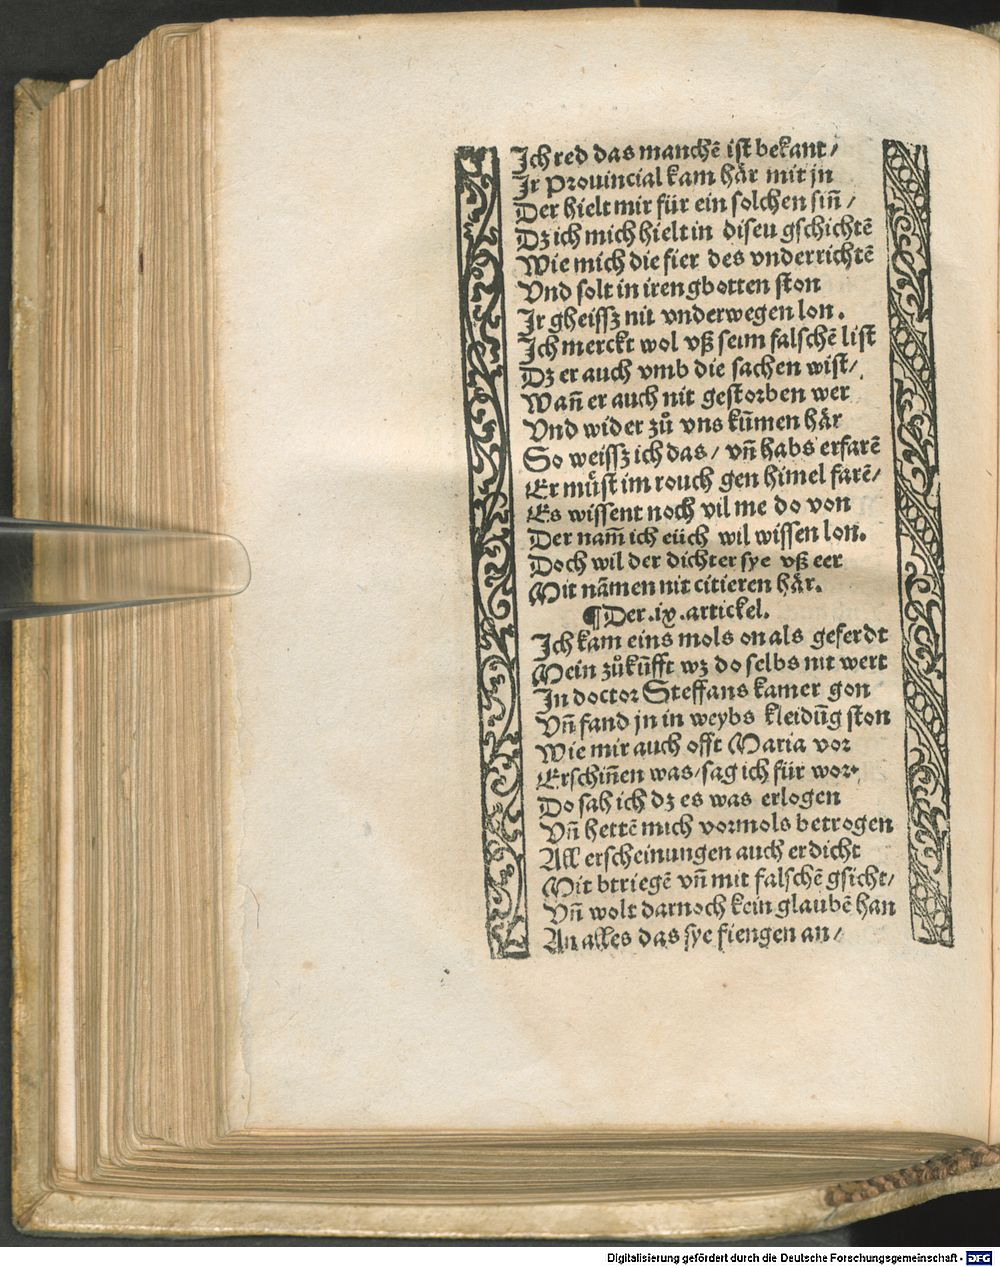 Ich red das manchē ist bekant/
Ir Prouincial kam här mit jn
Der hielt mir für ein solchen sin̄/
Dz ich mich hielt in diseu gschichtē
Wie mich die fier des vnderrichtē
Vnd solt in iren gbotten ston
Ir gheissz nit vnderwegen lon.
Ich merckt wol vß seim falschē list
Dz er auch vmb die sachen wist/
Wan̄ er auch nit gestorben wer
Vnd wider zů vns kum̄en här
So weissz ich das/ vn̄ habs erfarē
Er můst im rouch gen himel farē/
Es wissent noch vil me do von
Der nam̄ ich eüch wil wissen lon.
Doch wil der dichter sye vß eer
Mit nāmen nit citieren här.
¶Der .ix. artickel.
Ich kam eins mols on als geferdt
Mein zůkūfft wz do selbs nit wert
In doctor Steffans kamer gon
Vn̄ fand jn in weybs kleidūg ston
Wie mir auch offt Maria vor
Erschin̄en was/sag ich für wor.
Do sah ich dz es was erlogen
Vn̄ hettē mich vormols betrogen
All erscheinungen auch erdicht
Mit btriegē vn̄ mit falschē gsicht/
Vn̄ wolt darnoch kein glaubē han
An alles das sye fiengen an/
Digitalisierung gefördert durch die Deutsche Forschungsgemeinschaft - DFG